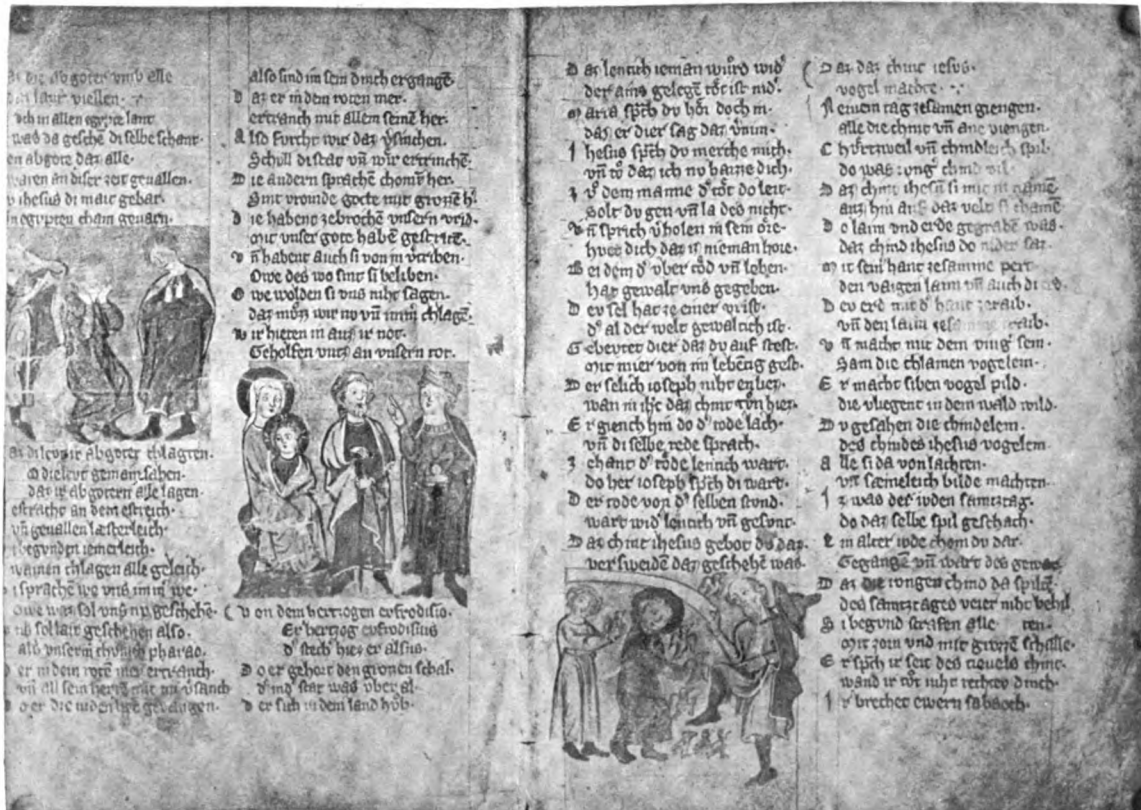 die abgoter vmb elle
viellen.
in allen egypte lant
was da geschen di selbe schant.
en abgote daz alle.
waren an diser zeit geuallen.
ihesus di mait gebar.
in egypten cham geuarn.
abgoter chlagten.
Odieleut gemain sahen.
daz ir abgotern alle lagen.
estracht an dem estreich.
vñ geuallen læsterleich.
begunden iemerleich.
chlagen alle geleich.
sprachē we vns im̄ we.
Owe waz sol vns nv geschehē.
sol lait geschehen also.
als vnserm chvnich pharao.
er in dem rotē mer ertranch.
vñ all sein
o er die
also sind im sein dinch ergangē.
D az er in dem roten mer.
ertranch mit allem seinē her.
A lso furcht wir daz v̓sinchen.
Schvll di stat vñ wir ertrinchē.
D ie andern sprachē chomēt her.
Sint vroude gote mit grozē h̓.
D ie habent zebrochē vnsern vrid.
Mit vnser gote habē gestritē.
V ñ habent auch si von in v̓triben.
Owe des wo sint si beliben.
O we wolden si vns niht sagen.
daz mvz wir nv vñ im̄ chlagē.
W ir hieten in auz ir not.
Geholfen vntz an vnsern tot.
V on dem hertzogen eufrodisio.
Er hertzog eufrodisius
d̓ stech hiez er alsus.
D o er gehort den grozen schal.
d̓ ind̓ stat was vber al.
D er sich in dem land hv̊b.
D az lentich ieman wůrd wid̓
der ains gelegē tôt ist nid̓.
M aria sp̄ch dv hôr doch in.
daz er dier sag daz
I hesus sp̄ch dv merche mich.
vñ tů daz ich nv haizze dich.
Z ů dem manne d̓ tôt do leit.
Solt dv gen vñ la des nicht.
V ñ sprich v̓holen in sein ôre.
huet dich daz iz nieman hore.
B ei dem d̓ vber tôd vñ leben.
hat gewalt vns gegeben.
D ev sel hat ze einer vrist.
d̓ al der welt gewaltich ist.
G ebeutet dier daz du auf stest.
Mit mier von im lebēng gest.
D er selich ioseph niht enliez.
wan in ih̄c daz chint tůn hiez.
E r giench hin do d̓ tode lach.
vñ di selbe rede sprach.
Z ehant d̓ tôde lentich wart.
do her ioseph sp̄ch di wart.
D er tode von d̓ selben stvnd.
wart wid̓ lentich vñ gesvnt.
D az chint ihesus gebot dv daz.
versweidē daz geschehē was.
D az daz chint iesus.
vogel machte.
A n einem tag zesamen giengen.
alle die chint vñ ane viengen.
C hvrtzweil vñ chindleich spil.
do was ivng̓ chind vil.
D az chint ihesū si mit in namē
auz hin auf daz velt si chamē
D o laim vnd erde gegrabē was.
daz chind ihesus do nider saz.
M it sein̓ hant zesamme pert
den vaigen laim vñ auch di
D ev erd mit d̓ hant zeraib.
vñ den laim
V ñ macht mit dem ving̓ sein.
Sam die chlainen vogelein.
E r macht siben vogel pild.
die vliegent in dem wald wild.
D v gesahen die chindelein.
des chindes ihesus vogelein.
A lle si da von lachten.
vñ sæmeleich bilde machten.
I z was der iuden samtztag.
do daz selbe spil geschach.
E in alter iude chom dv dar.
Gegangē vñ wart des gewar
D az die iungen chind da spiltē.
des samtztages veier niht behil
S i begvnd strafen alle
Mit zorn vnd mit grozē schalle.
E r sp̄ch ir seit des tieuels chint.
wand ir tôt niht rechtev dinch.
I r brechet ewern sabaoth.